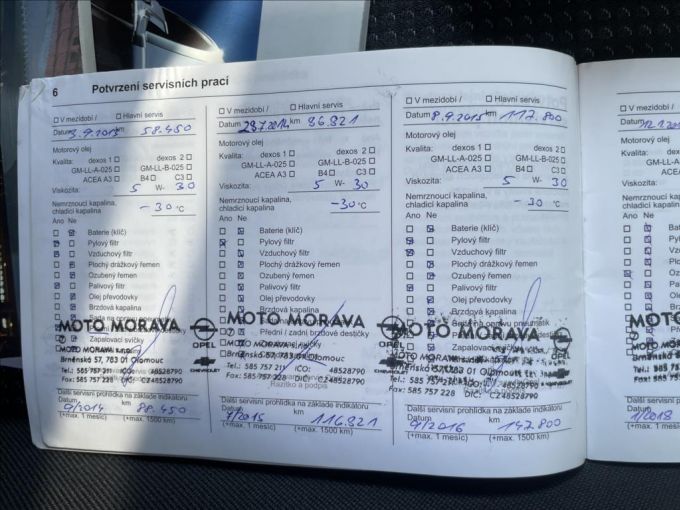 6 Potvrzení servisních prací
V mezidobí / Hlavní servis
Datum 3.9.2013 km 58.450
Motorový olej
Kvalita: dexos 1 dexos 2
GM-LL-A-025 GM-LL-B-025
ACEA A3 B4 C3
Viskozita: 5 W- 30
Nemrznoucí kapalina,
chladicí kapalina -30 °C
Ano Ne
Baterie (klíč)
Pylový filtr
Vzduchový filtr
Plochý drážkový řemen
Ozubený řemen
Palivový filtr
Olej převodovky
Brzdová kapalina
MOTO MORAVA
Zapalovací svíčky
MOTO MORAVA
OPEL
Brněnská 57, 783 01 Olomouc
CHEVROLET
Tel.: 585 757 211 IČO: 48528790
Fax: 585 757 228 DIČ: CZ48528790
Další servisní prohlídka na základě indikátoru
Datum km
9/2014 88.450
(+max. 1 měsíc) (+max. 1500 km)
V mezidobí / Hlavní servis
Datum 29.7.2014 km 86.821
Motorový olej
Kvalita: dexos 1 dexos 2
GM-LL-A-025 GM-LL-B-025
ACEA A3 B4 C3
Viskozita: 5 W- 30
Nemrznoucí kapalina,
chladicí kapalina -30 °C
Ano Ne
Baterie (klíč)
Pylový filtr
Vzduchový filtr
Plochý drážkový řemen
Ozubený řemen
Palivový filtr
Olej převodovky
Brzdová kapalina
MOTO MORAVA
Přední / zadní brzdové destičky
OPEL
Brněnská 57, 783 01 Olomouc
CHEVROLET
Tel.: 585 757 211 IČO: 48528790
Fax: 585 757 228 DIČ: CZ48528790
Razítko a podpis
Další servisní prohlídka na základě indikátoru
Datum km
7/2015 116.821
(+max. 1 měsíc) (+max. 1500 km)
V mezidobí / Hlavní servis
Datum 8.9.2015 km 112.800
Motorový olej
Kvalita: dexos 1 dexos 2
GM-LL-A-025 GM-LL-B-025
ACEA A3 B4 C3
Viskozita: 5 W- 30
Nemrznoucí kapalina,
chladicí kapalina -30 °C
Ano Ne
Baterie (klíč)
Pylový filtr
Vzduchový filtr
Plochý drážkový řemen
Ozubený řemen
Palivový filtr
Olej převodovky
Brzdová kapalina
MOTO MORAVA
OPEL
Brněnská 57, 783 01 Olomouc
CHEVROLET
Tel.: 585 757 211
Fax: 585 757 228 DIČ: CZ48528790
Další servisní prohlídka na základě indikátoru
Datum km
9/2016 142.800
(+max. 1 měsíc) (+max. 1500 km)
V mezidobí /
Datum
Motorový olej
Kvalita:
Viskozita:
Nemrznoucí kapalina,
chladicí kapalina
Ano Ne
MOTO
Tel.:
Fax:
Další servisní
Datum
1/2018
(+max. 1 měsíc)